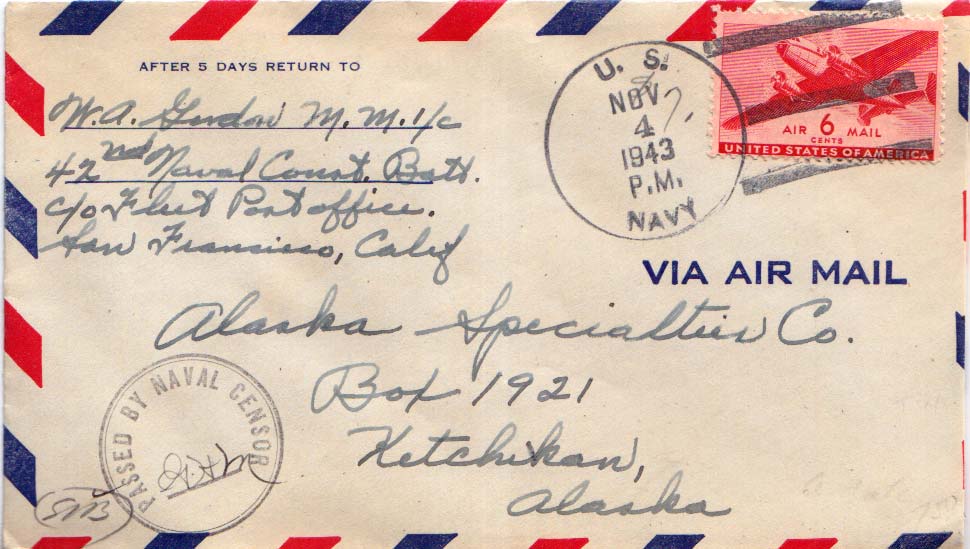 AFTER 5 DAYS RETURN TO
W.A. Gordon M.M. 1/c
42nd Naval Const. Batt.
c/o Fleet Post office.
San Francisco, Calif
U. S.
NOV
4
1943
P.M.
NAVY
AIR 6 MAIL
CENTS
UNITED STATES OF AMERICA
VIA AIR MAIL
Alaska Specialties Co.
Box 1921
Ketchikan,
Alaska
PASSED BY NAVAL CENSOR